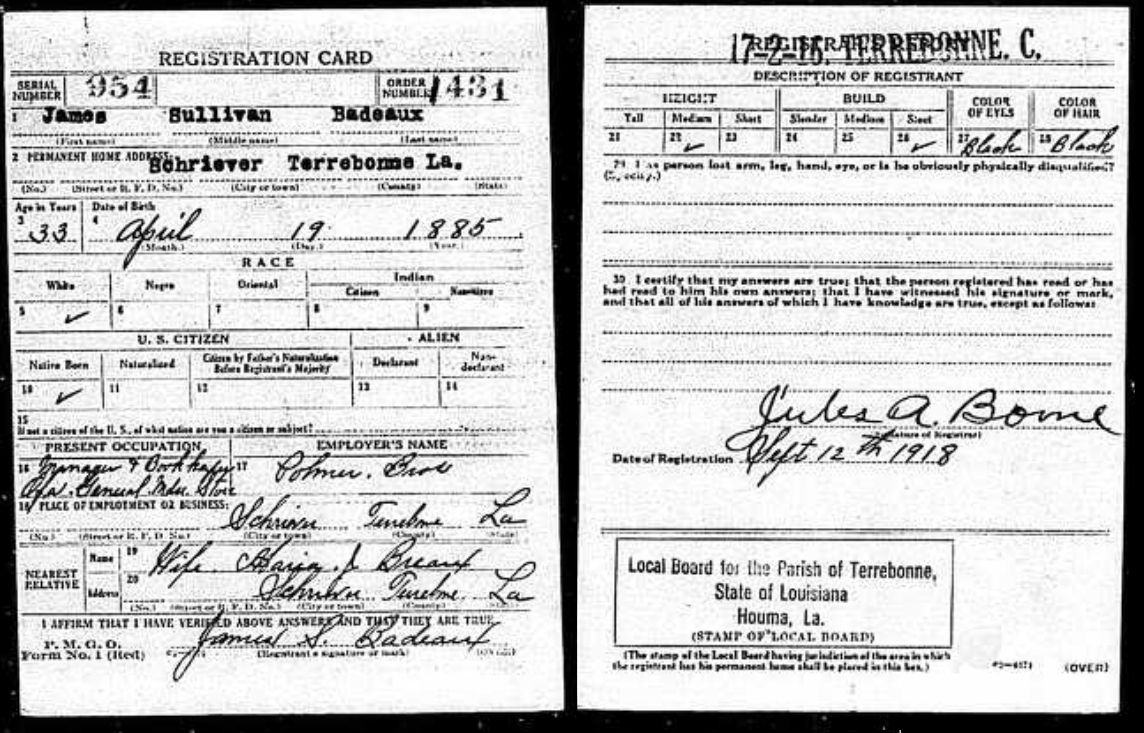 REGISTRATION CARD
SERIAL NUMBER 954 ORDER NUMBER 1431
1 James Sullivan Badeaux
(First name) (Middle name) (Last name)
2 PERMANENT HOME ADDRESS:
Schriever Terrebonne La.
(No.) (Street or R. F. D. No.) (City or town) (County) (State)
Age in Years Date of Birth
3 33 4 April 19 1885
(Month.) (Day.) (Year.)
RACE
White Negro Oriental Indian
Citizen
5 ✓ 6 7 8 9
U. S. CITIZEN ALIEN
Native Born Naturalized Citizen by Father's Naturalization Before Registrant's Majority Declarant Non-declarant
10 ✓ 11 12 13 14
15
If not a citizen of the U. S., of what nation are you a citizen or subject?
PRESENT OCCUPATION EMPLOYER'S NAME
16 Manager & Bookkeeper 17 Polmer Bros
General Mdse. Store
18 PLACE OF EMPLOYMENT OR BUSINESS:
Schriever Terrebonne La
(No.) (Street or R. F. D. No.) (City or town) (County) (State)
NEAREST RELATIVE
Name 19 Wife J Breaux
Address 20 Schriever Terrebonne La
(No.) (Street or R. F. D. No.) (City or town) (County) (State)
I AFFIRM THAT I HAVE VERIFIED ABOVE ANSWERS AND THAT THEY ARE TRUE
P. M. G. O.
Form No. 1 (Red)
James S. Badeaux
(Registrant's signature or mark) (OVER)
REGISTRAR'S REPORT
17-2-16. TERREBONNE. C.
DESCRIPTION OF REGISTRANT
HEIGHT BUILD COLOR OF EYES COLOR OF HAIR
Tall Medium Short Slender Medium Stout
21 22 ✓ 23 24 25 26 ✓ 27 Black 28 Black
29 Has person lost arm, leg, hand, eye, or is he obviously physically disqualified?
(Specify.)
30 I certify that my answers are true; that the person registered has read or has
had read to him his own answers; that I have witnessed his signature or mark,
and that all of his answers of which I have knowledge are true, except as follows:
Jules A. Borne
(Signature of Registrar)
Date of Registration Sept 12th 1918
Local Board for the Parish of Terrebonne,
State of Louisiana
Houma, La.
(STAMP OF LOCAL BOARD)
(The stamp of the Local Board having jurisdiction of the area in which
the registrant has his permanent home shall be placed in this box.)
(OVER)